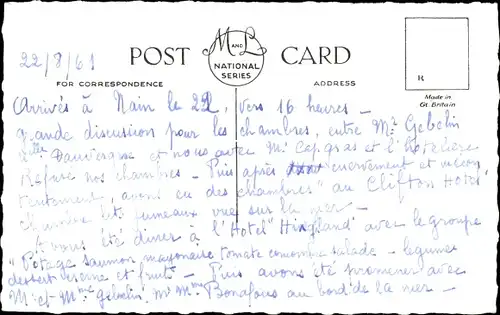 22/8/61
POST CARD
M AND L
NATIONAL
SERIES
FOR CORRESPONDENCE
ADDRESS
R
Made in
Gt. Britain
Arrivés à Nairn le 22, vers 16 heures -
grande discussion pour les chambres, entre Mr Gebelin
Mlle Dauvergne et nous avec Mr Capgras et l'hôtelière
Refusé nos chambres - Puis après enervement et mécon
tentement, avons eu des chambres au Clifton Hôtel
chambre lits jumeaux vue sur la mer -
Avons été diner à l'Hôtel "Highland" avec le groupe
"Potage saumon mayonnaise tomate concombre salade - legumes
dessert et fruits - Puis avons été promener avec
Mr et Mme Gebelin, Mr Mme Bonafous au bord de la mer -